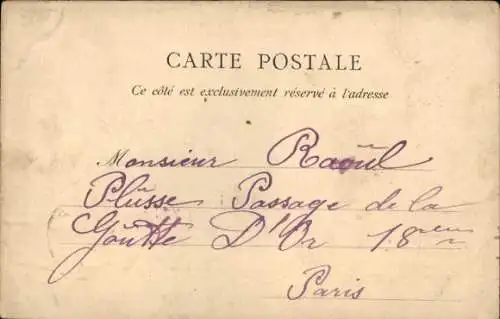 CARTE POSTALE
Ce côté est exclusivement réservé à l'adresse
Monsieur Raoul
Plusse Passage de la
Goutte D'Or 18eme
Paris